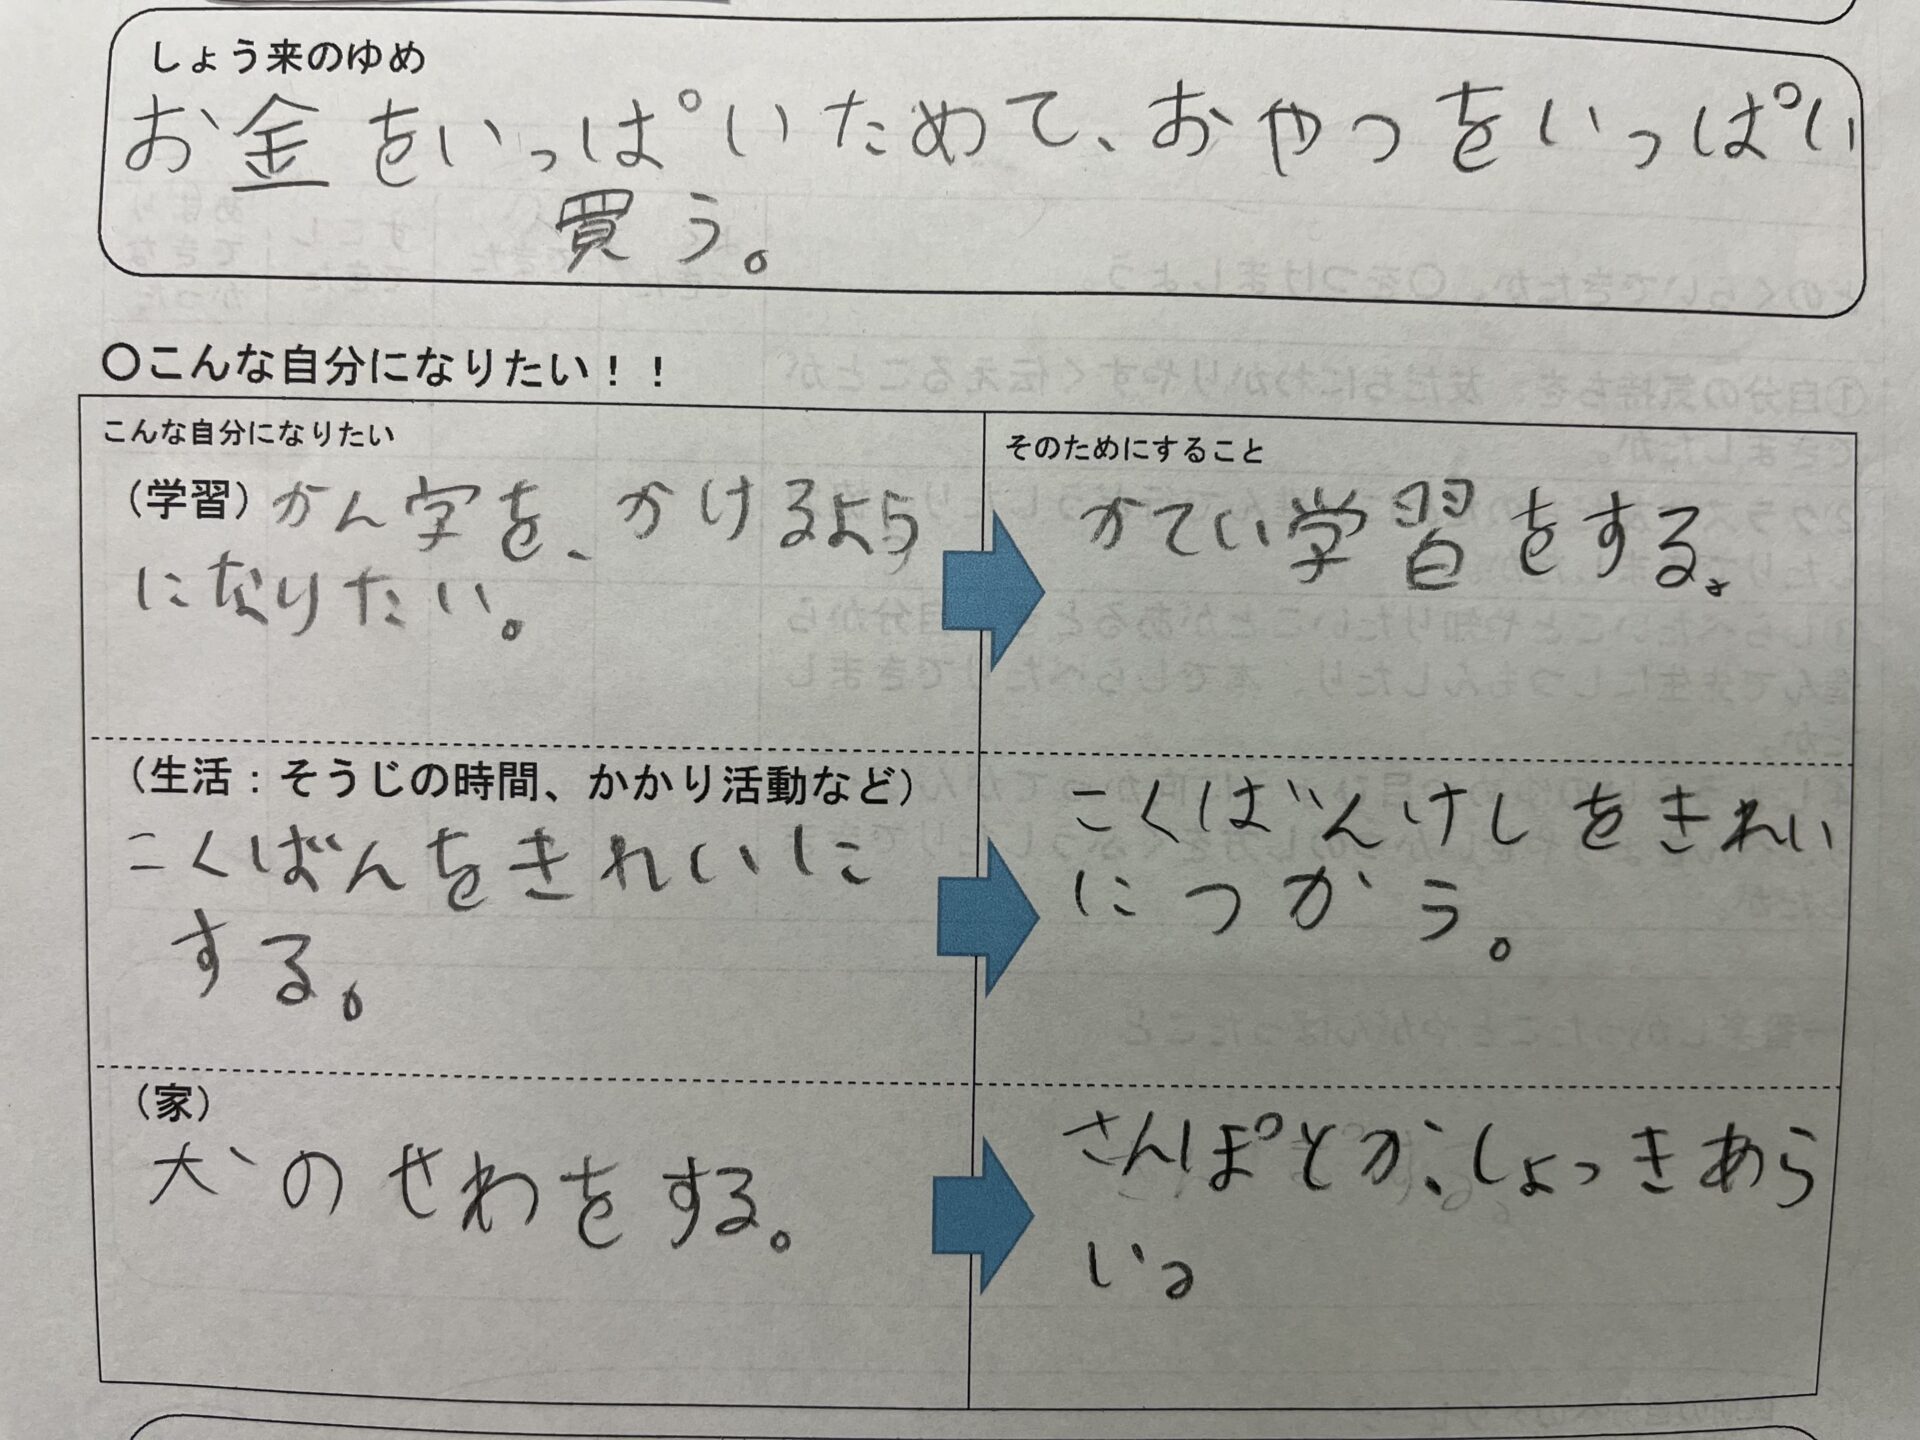 しょう来のゆめ
お金をいっぱいためて、おやつをいっぱい
買う。
〇こんな自分になりたい！！
こんな自分になりたい
(学習)かん字を、かけるよう
になりたい。
そのためにすること
かてい学習をする。
(生活：そうじの時間、かかり活動など)
こくばんをきれいに
する。
こくばんけしをきれい
につかう。
(家)
犬のせわをする。
さんぽとか、しょっきあら
い。